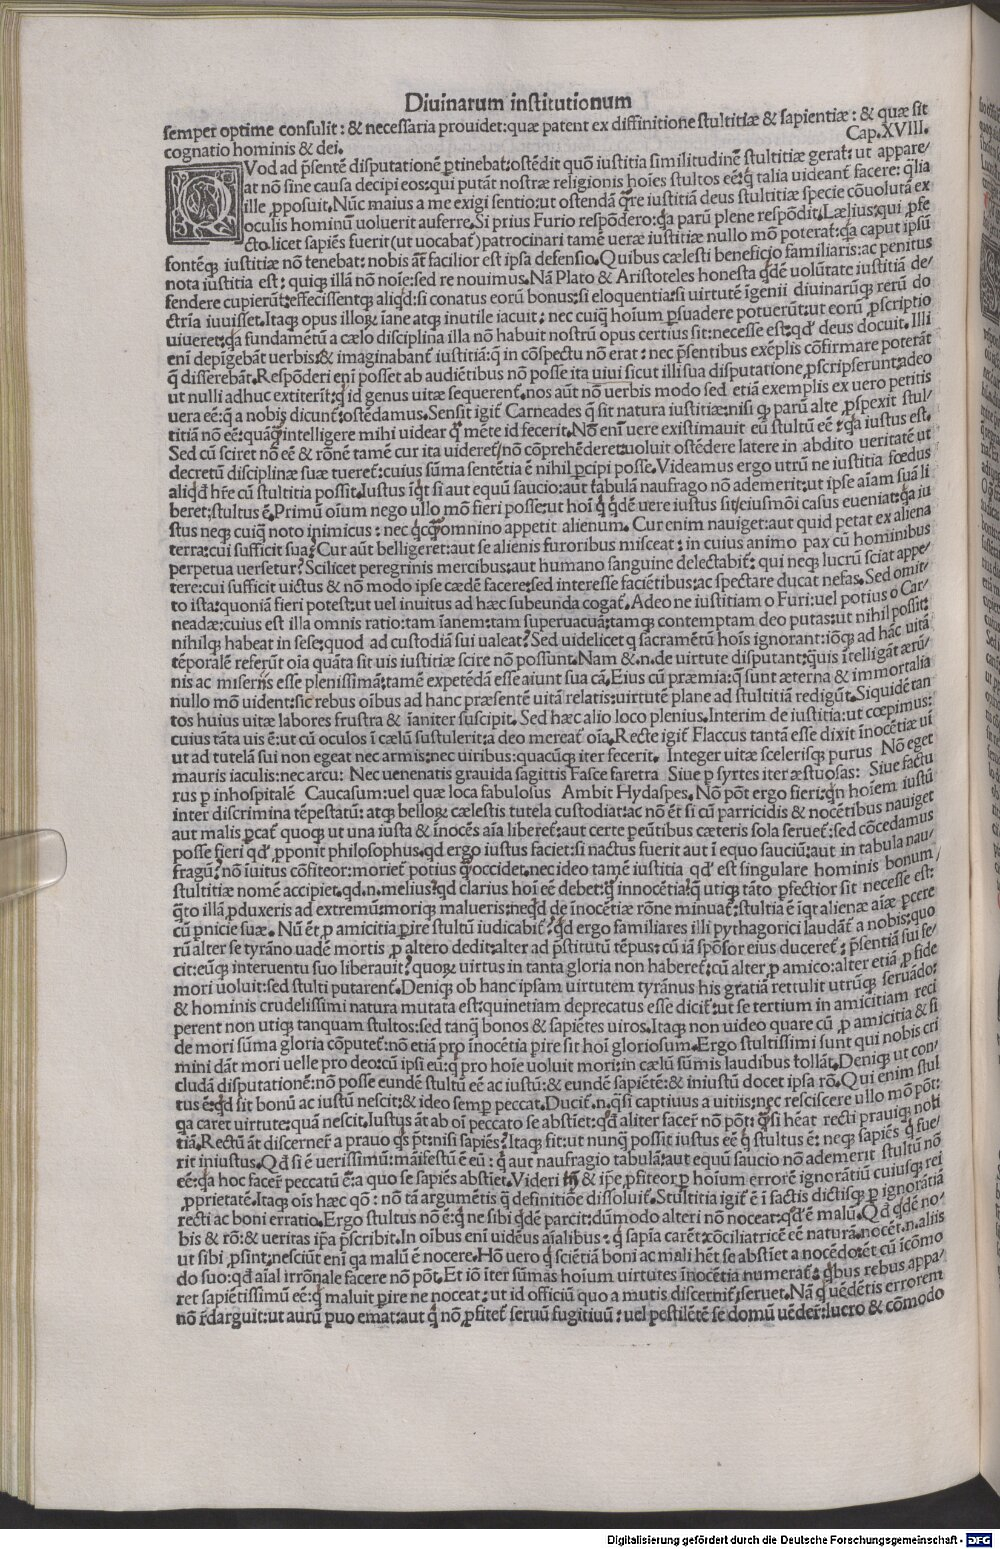 Diuinarum institutionum
semper optime consulit: & necessaria prouidet: quæ patent ex diffinitione stultitiæ & sapientiæ: & quæ sit
cognatio hominis & dei. Cap. XVIII.
QVod ad p̄sentē disputationē ꝑtinebat: ostēdit quō iustitia similitudinē stultitiæ gerat: ut appare/
at nō sine causa decipi eos: qui putāt nostræ religionis hoīes stultos eē: q̄ talia uideant᷑ facere: q̄lia
ille ꝓposuit. Nūc maius a me exigi sentio: ut ostendā q̄re iustitiā deus stultitiæ specie cōuolutā ex
oculis hominū uoluerit auferre. Si prius Furio respōdero: q̄a parū plene respōdit. Lælius: qui ꝓfe
cto. licet sapiēs fuerit (ut uocabat᷑) patrocinari tamē ueræ iustitiæ nullo mō poterat: q̄a caput ipsū
fontēq; iustitiæ nō tenebat: nobis āt facilior est ipsa defensio. Quibus cælesti beneficio familiaris: ac penitus
nota iustitia est: quiq; illā nō noīe: sed re nouimus. Nā Plato & Aristoteles honesta q̄dē uolūtate iustitiā de/
fendere cupierūt: effecissentq; aliqd: si conatus eorū bonus: si eloquentia: si uirtutē īgenii diuinarūq; rerū do
ctrīa iuuisset. Itaq; opus illoꝝ īane atq; inutile iacuit: nec cuiq̄ hoīum ꝑsuadere potuerūt: ut eorū ꝓscriptio
uiueret: q̄a fundamētū a cælo disciplina illa nō habuit nostrū opus certius sit: necesse est: qd deus docuit. Illi
enī depīgebāt uerbis: & imaginabant᷑ iustitiā: q̄ in cōspectu nō erat: nec p̄sentibus exēplis cōfirmare poterāt
q̄ disserebāt. Respōderi enī posset ab audiētibus nō posse ita uiui sicut illi sua disputatione ꝓscripserunt: adeo
ut nulli adhuc extiterīt: q̄ id genus uitæ sequerent᷑. nos aūt nō uerbis modo sed etiā exemplis ex uero petitis
uera eē: q̄ a nobis dicunt᷑: ostēdamus. Sensit igit᷑ Carneades q̄ sit natura iustitiæ: nisi q; parū alte ꝑspexit stul/
titiā nō eē: quāq̄ intelligere mihi uidear q̄ mēte id fecerit. Nō enī uere existimauit eū stultū eē: q̄a iustus est.
Sed cū sciret nō eē & rōnē tamē cur ita uideret᷑ nō cōprehēderet: uoluit ostēdere latere in abdito ueritatē ut
decretū disciplinæ suæ tueret᷑: cuius sūma sentētia ē nihil ꝑcipi posse. Videamus ergo utrū ne iustitia fœdus
aliqd hr̄e cū stultitia possit. Iustus īq̄t si aut equū saucio: aut tabulā naufrago nō ademerit: ut ipse aīam suā li
beret: stultus ē. Primū oīum nego ullo mō fieri posse: ut hoī q̄ q̄dē uere iustus sit / eiusmōi casus eueniat: q̄a iu
stus neq; cuiq̄ noto inimicus: nec q̄cq̄ omnino appetit alienum. Cur enim nauiget: aut quid petat ex aliena
terra: cui sufficit sua? Cur aūt belligeret: aut se alienis furoribus misceat: in cuius animo pax cū hominibus
perpetua uersetur? Scilicet peregrinis mercibus: aut humano sanguine delectabit᷑: qui neq; lucrū sciat appe/
tere: cui sufficit uictus & nō modo ipse cædē facere: sed interesse faciētibus: ac spectare ducat nefas. Sed omit/
to ista: quoniā fieri potest: ut uel inuitus ad hæc subeunda cogat᷑. Adeo ne iustitiam o Furi: uel potius o Car/
neadæ: cuius est illa omnis ratio: tam īanem: tam superuacuā: tamq; contemptam deo putas: ut nihil possit:
nihilq; habeat in sese: quod ad custodiā sui ualeat? Sed uidelicet q̄ sacramētū hoīs ignorant: iōq; ad hāc uitā
tēporalē referūt oīa quāta sit uis iustitiæ scire nō possunt. Nam &. n. de uirtute disputant: q̄uis ītelligāt ærū/
nis ac miseriis esse plenissimā: tamē expetēdā esse aiunt sua cā. Eius cū præmia: q̄ sunt æterna & immortalia
nullo mō uident: sic rebus oībus ad hanc præsentē uitā relatis: uirtutē plane ad stultitiā redigūt. Siquidē tan
tos huius uitæ labores frustra & īaniter suscipit. Sed hæc alio loco plenius. Interim de iustitia: ut cœpimus:
cuius tāta uis ē: ut cū oculos ī cælū sustulerit: a deo mereat᷑ oīa. Recte igit᷑ Flaccus tantā esse dixit īnocētiæ uī
ut ad tutelā sui non egeat nec armis: nec uiribus: quacūq; iter fecerit. Integer uitæ scelerisq; purus Nō eget
mauris iaculis: nec arcu: Nec uenenatis grauida sagittis Fusce faretra Siue ꝑ syrtes iter æstuosas: Siue factu
rus ꝑ inhospitalē Caucasum: uel quæ loca fabulosus Ambit Hydaspes. Nō pōt ergo fieri: q̄n hoīem iustū
inter discrimina tēpestatū: atq; belloꝝ cælestis tutela custodiat: ac nō ēt si cū parricidis & nocētibus nauiget
aut malis ꝑcat᷑ quoq; ut una iusta & īnocēs aīa liberet᷑: aut certe ꝑeūtibus cæteris sola seruet᷑: sed cōcedamus
posse fieri qd ꝓponit philosophus. qd ergo iustus faciet: si nactus fuerit aut ī equo sauciū: aut in tabula nau/
fragū? nō īuitus cōfiteor: moriet᷑ potius q̄ occidet. nec ideo tamē iustitia qd est singulare hominis bonum/
stultitiæ nomē accipiet. qd. n. melius: qd clarius hoī eē debet: q̄ innocētia: q̄ utiq; tāto ꝑfectior sit necesse est:
q̄to illā ꝓduxeris ad extremū: moriq; malueris: neqd de īnocētiæ rōne minuat᷑: stultia ē īqt alienæ aīæ ꝑcere
cū ꝑnicie suæ. Nū ēt ꝑ amicitia ꝑire stultū iudicabit᷑: qd ergo familiares illi pythagorici laudāt᷑ a nobis: quo
rū alter se tyrāno uadē mortis ꝑ altero dedit: alter ad p̄stitutū tēpus: cū iā spōsor eius duceret᷑: p̄sentiā sui fe/
cit: eūq; interuentu suo liberauit? quoꝝ uirtus in tanta gloria non haberet᷑: cū alter ꝓ amico: alter etiā ꝓ fide
mori uoluit: sed stulti putarent᷑. Deniq; ob hanc ipsam uirtutem tyrānus his gratiā rettulit utrūq; seruādo:
& hominis crudelissimi natura mutata est: quinetiam deprecatus esse dicit᷑: ut se tertium in amicitiam reci
perent non utiq; tanquam stultos: sed tanq̄ bonos & sapiētes uiros. Itaq; non uideo quare cū ꝓ amicitia & fi
de mori sūma gloria cōputet᷑: nō etiā pro īnocētia ꝑire sit hoī gloriosum. Ergo stultissimi sunt qui nobis cri
mini dāt mori uelle pro deo: cū ipsi eū: q̄ pro hoīe uoluit mori: in cælū sūmis laudibus tollāt. Deniq; ut con/
cludā disputationē: nō posse eundē stultū eē ac iustū: & eundē sapiētē: & iniustū docet ipsa rō. Qui enim stul
tus ē: qd sit bonū ac iustū nescit: & ideo semꝑ peccat. Ducit᷑. n. q̄si captiuus a uitiis: nec resciscere ullo mō pōt:
qa caret uirtute: quā nescit. Iustus āt ab oī peccato se abstīet: qd aliter facer̄ nō pōt: q̄si hēat recti prauiq; noti
tiā. Rectū āt discerner̄ a prauo q̄s p̄t: nisi sapiēs? Itaq; fit: ut nunq̄ possit iustus eē q̄ stultus ē: neq; sapiēs q̄ fue/
rit iniustus. Qd si ē uerissimū: māifestū ē eū: q̄ aut naufragio tabulā: aut equū saucio nō ademerit stultū nō
eē: qa hoc facer̄ peccatū ē: a quo se sapiēs abstīet. Videri tn̄ & ip̄e ꝓfiteor ꝑ hoīum errorē ignorātiū cuiusq; rei
ꝓprietatē. Itaq; oīs hæc qō: nō tā argumētis q̄ definitiōe dissoluit᷑. Stultitia igit᷑ ē ī factis dictisq; ꝑ ignorātiā
recti ac boni erratio. Ergo stultus nō ē: q̄ ne sibi q̄dē parcit: dūmodo alteri nō noceat: qd ē malū. Qd q̄dē no/
bis & rō: & ueritas ip̄a p̄scribit. In oībus enī uidēus aīalibus: q̄ sapīa carēt: cōciliatricē eē naturā. nocēt. n. aliis
ut sibi ꝓsint: nesciūt enī qa malū ē nocere. Hō uero q̄ sciētiā boni ac mali hēt se abstīet a nocēdo: ēt cū īcōmo
do suo: qd aīal irrōnale facere nō pōt. Et iō īter sūmas hoīum uirtutes īnocētia numerat᷑: q̄bus rebus appa/
ret sapiētissimū eē: q̄ maluit ꝑire ne noceat: ut id officiū quo a mutis discernit᷑: seruet. Nā q̄ uēdētis errorem
nō r̄darguit: ut aurū ꝑuo emat: aut q̄ nō ꝓfitet᷑ seruū fugitiuū: uel pestilētē se domū uēder̄: lucro & cōmodo
Digitalisierung gefördert durch die Deutsche Forschungsgemeinschaft - DFG